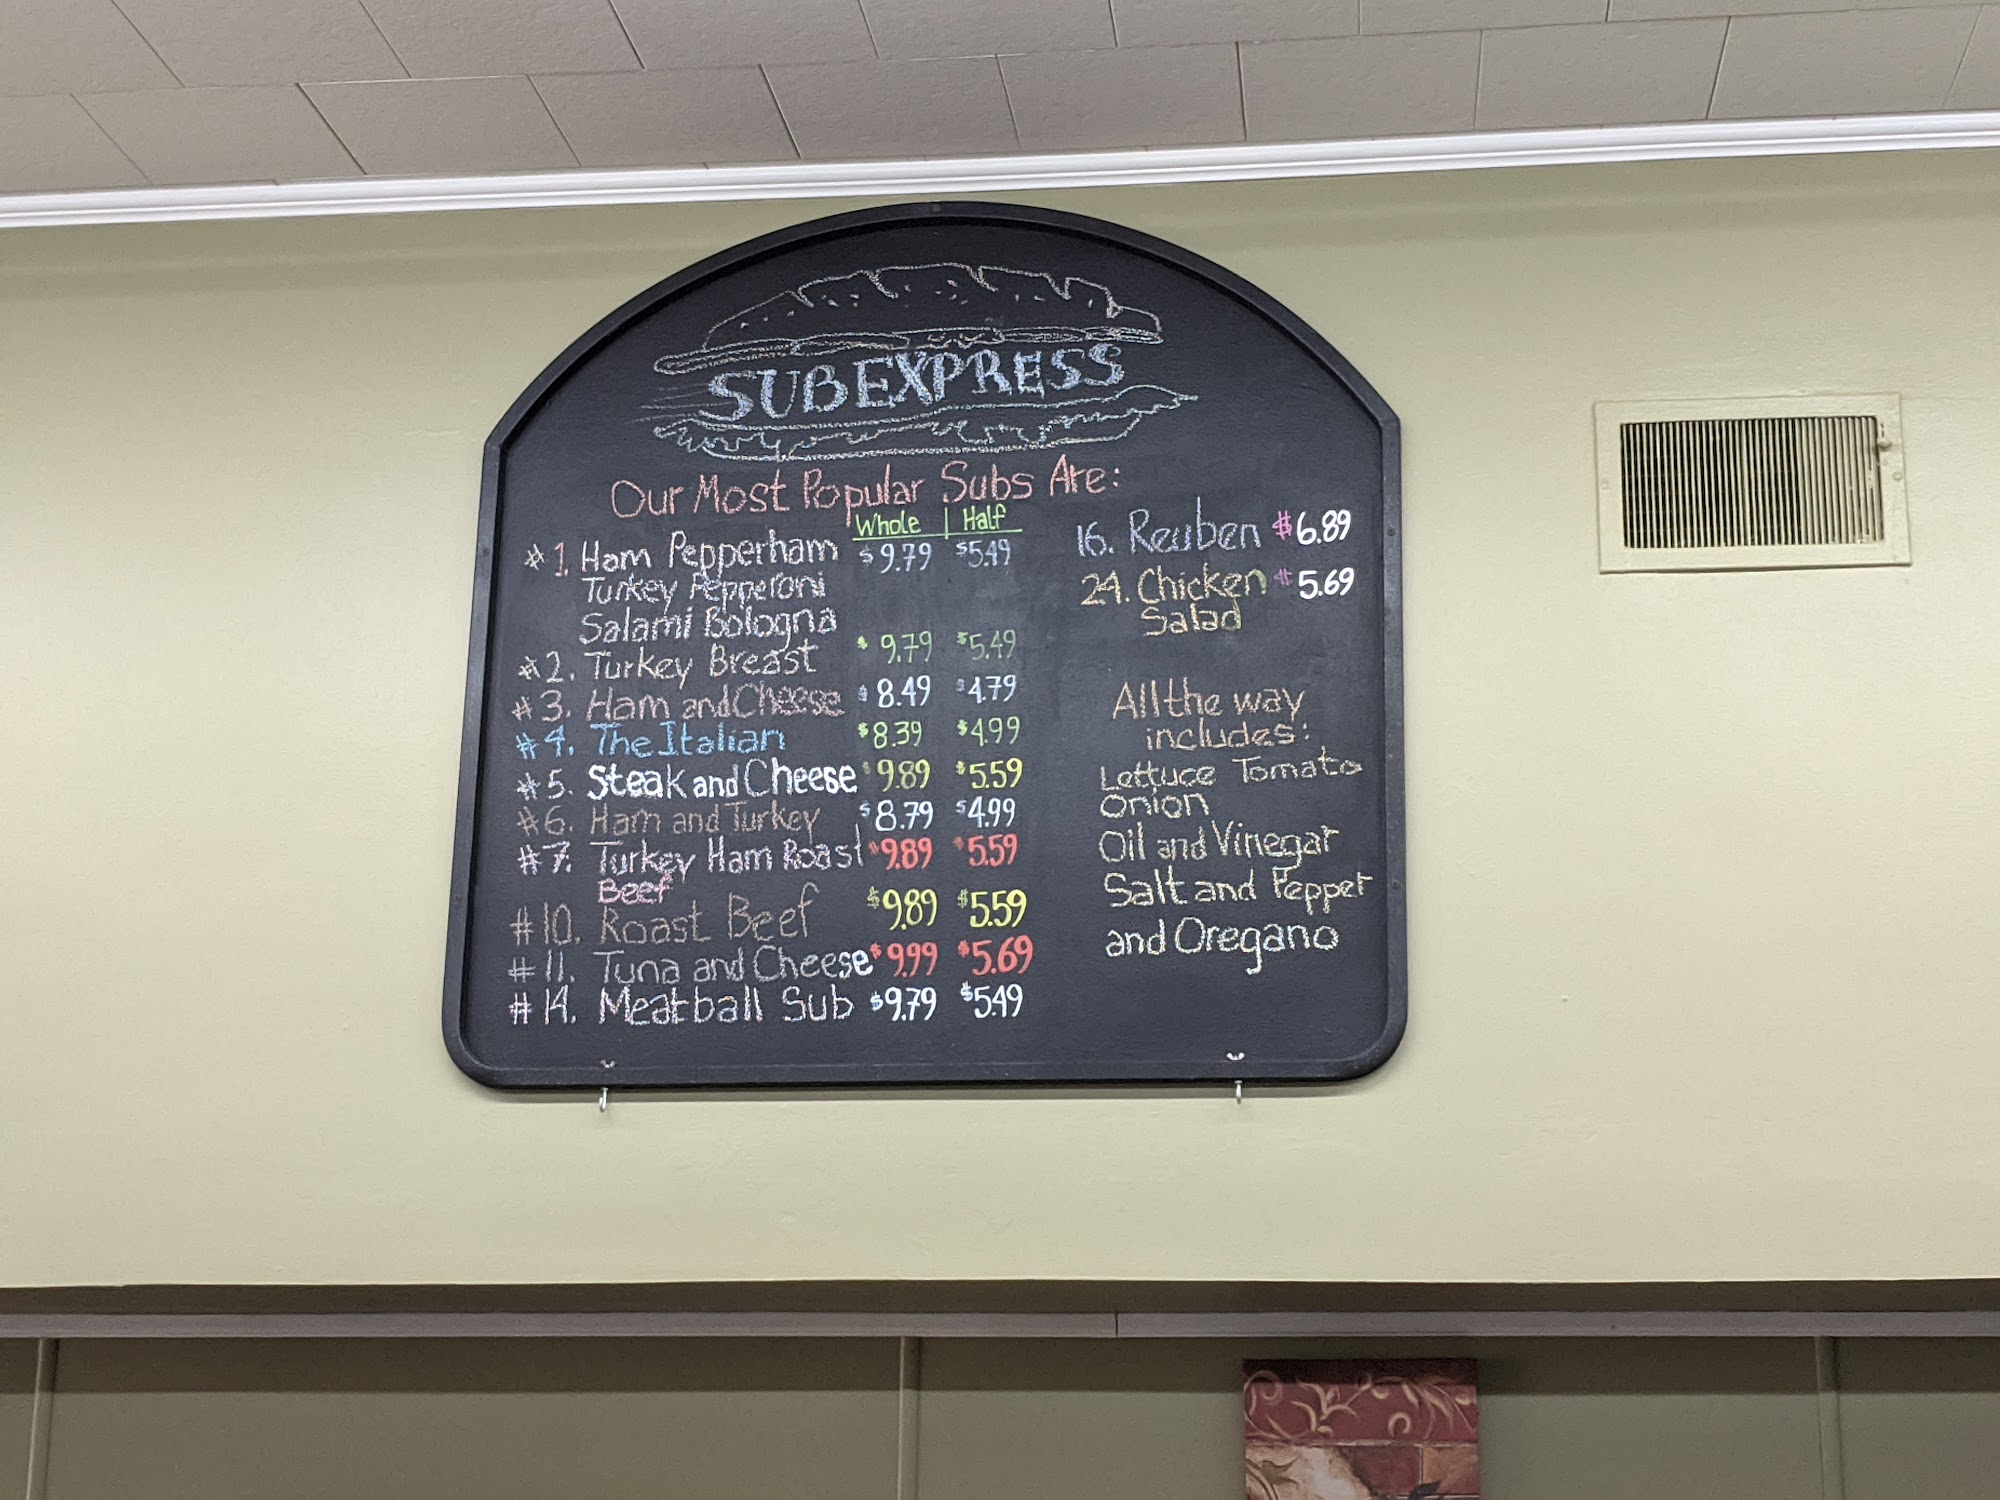 SUB EXPRESS
Our Most Popular Subs Are:
Whole | Half
#1. Ham Pepperham $9.79 $5.49
Turkey Pepperoni
Salami Bologna
#2. Turkey Breast $9.79 $5.49
#3. Ham and Cheese $8.49 $4.79
#4. The Italian $8.39 $4.99
#5. Steak and Cheese $9.89 $5.59
#6. Ham and Turkey $8.79 $4.99
#7. Turkey Ham Roast $9.89 $5.59
Beef
#10. Roast Beef $9.89 $5.59
#11. Tuna and Cheese $9.99 $5.69
#14. Meatball Sub $9.79 $5.49
16. Reuben $6.89
24. Chicken $5.69
Salad
All the way
includes:
Lettuce Tomato
Onion
Oil and Vinegar
Salt and Pepper
and Oregano